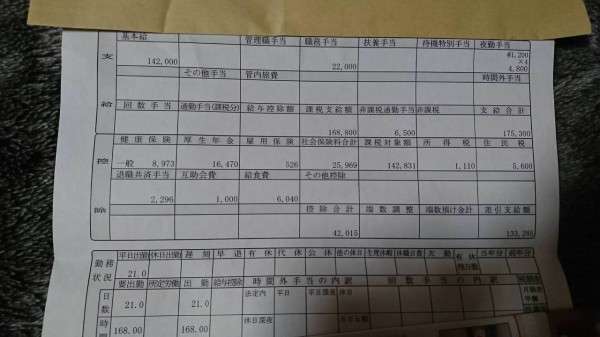 基本給 管理職手当 職務手当 扶養手当 待機特別手当 夜勤手当
¥1,200
×4
142,000 22,000 4,800
支
その他手当 管内旅費 時間外手当
給
回数手当 通勤手当(課税分) 給与控除額 課税支給額 非課税通勤手当 非課税 支給合計
168,800 6,500 175,300
控
健康保険 厚生年金 雇用保険 社会保険料合計 課税対象額 所得税 住民税
一般 8,973 16,470 526 25,969 142,831 1,110 5,600
退職共済手当 互助会費 給食費 その他控除
2,296 1,000 6,040
除
控除合計 端数調整 端数預け合計 差引支給額
42,015 133,285
勤務
状況
平日出勤 休日出勤 遅刻 早退 有休 代休 公休 他の休日 生理休暇 休職日数 欠勤 有休 当年分 前年分
21.0
要出勤 所定労働 出勤 給与控除 時間外手当の内訳 回数手当の内訳
日
数
21.0 21.0
法定内 平日 平日深夜 休日
時
168.00 168.00
休日深夜